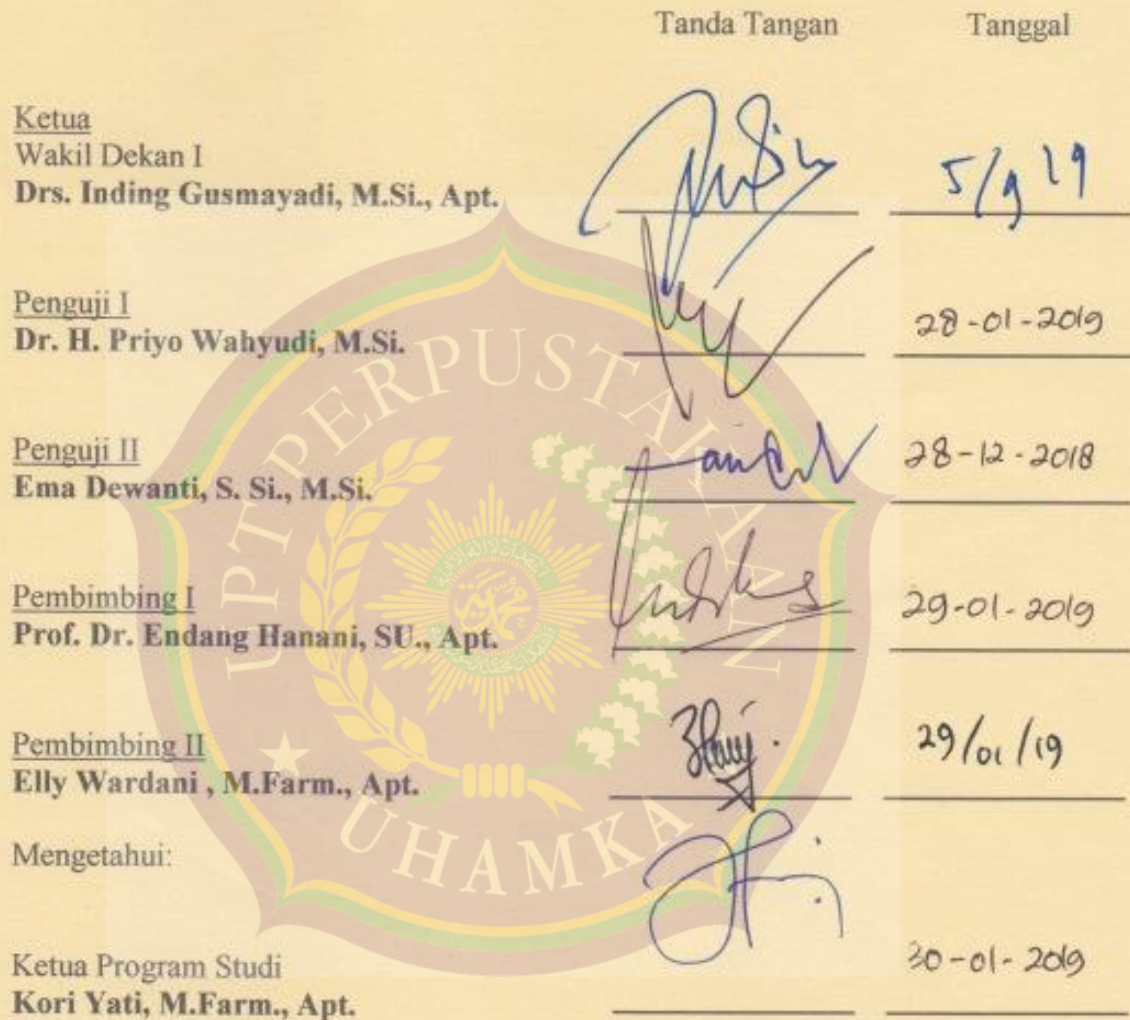 Tanda Tangan Tanggal
Ketua
Wakil Dekan I
Drs. Inding Gusmayadi, M.Si., Apt.
5/9 19
Penguji I
Dr. H. Priyo Wahyudi, M.Si.
28-01-2019
Penguji II
Ema Dewanti, S. Si., M.Si.
28-12-2018
Pembimbing I
Prof. Dr. Endang Hanani, SU., Apt.
29-01-2019
Pembimbing II
Elly Wardani , M.Farm., Apt.
29/01/19
Mengetahui:
Ketua Program Studi
Kori Yati, M.Farm., Apt.
30-01-2019
UPT PERPUSTAKAAN
UHAMKA